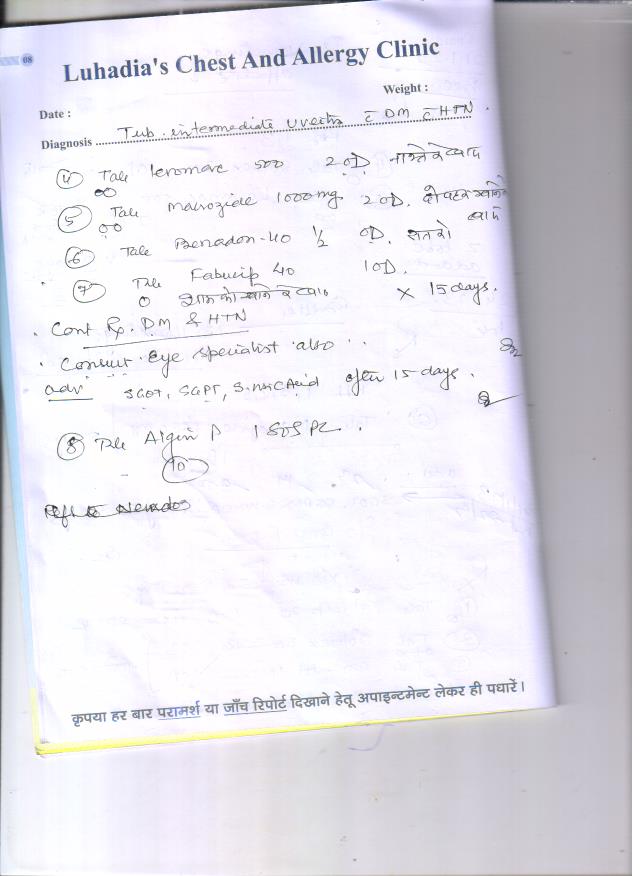 08
Luhadia's Chest And Allergy Clinic
Weight :
Date :
Diagnosis Tub. intermediate Uveitis c̄ DM c̄ HTN.
4) Tab 500 2 OD नाश्ते के बाद
5) Tab Macrozide 1000mg 2 OD. दोपहर खाने के
बाद
6) Tab Benadon-40 1/2 OD. रात को
7) Tab 40 1 OD.
शाम को खाने के बाद × 15 days.
. Cont Rx. DM & HTN
. Consult Eye specialist also ..
adv SGOT, SGPT, S. Uric Acid after 15 days.
8) Tab P 1 SOS
10
कृपया हर बार परामर्श या जाँच रिपोर्ट दिखाने हेतू अपाइन्टमेन्ट लेकर ही पधारें।